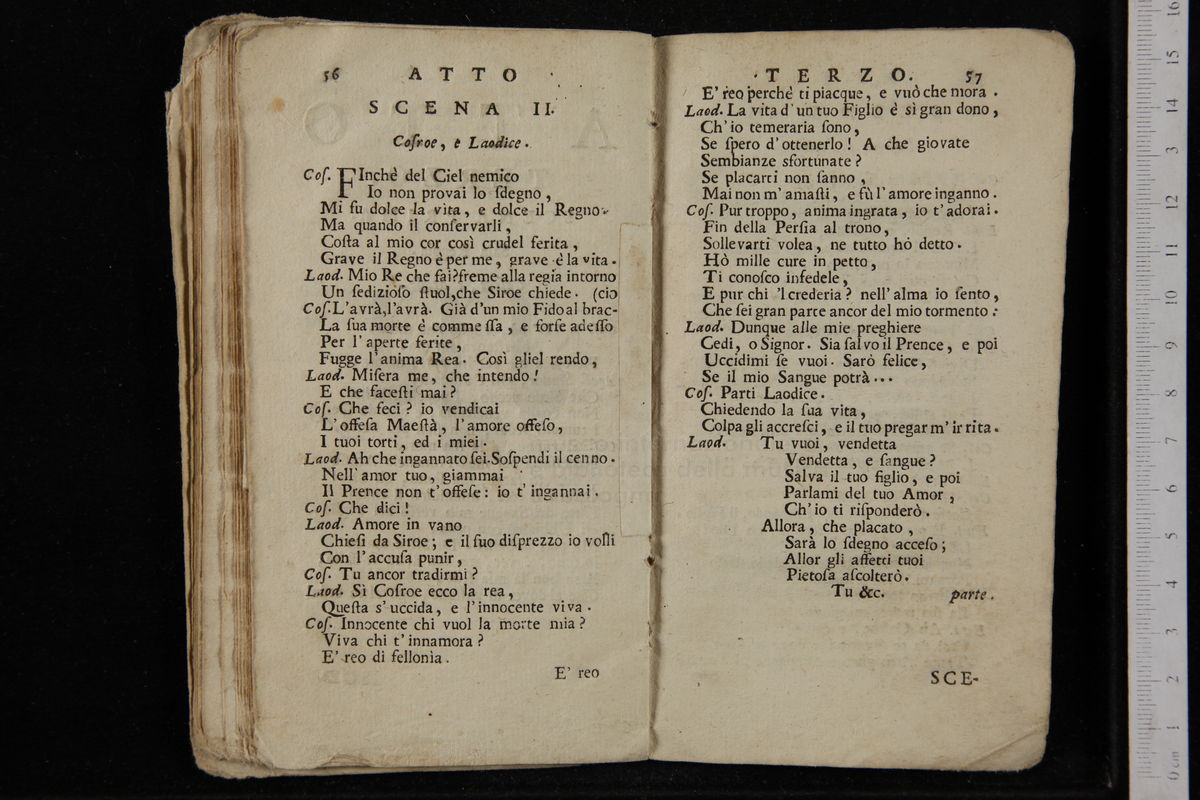 56 ATTO
SCENA II.
Coſroe, e Laodice.
Coſ. FInchè del Ciel nemico
Io non provai lo ſdegno,
Mi fu dolce la vita, e dolce il Regno.
Ma quando il conſervarli,
Coſta al mio cor così crudel ferita,
Grave il Regno è per me, grave è la vita.
Laod. Mio Re che fai? freme alla regia intorno
Un ſedizioſo ſtuol, che Siroe chiede. (cio
Coſ. L'avrà, l'avrà. Già d'un mio Fido al brac-
La ſua morte è commeſſa, e forſe adeſſo
Per l'aperte ferite,
Fugge l'anima Rea. Così gliel rendo,
Laod. Miſera me, che intendo!
E che faceſti mai?
Coſ. Che feci? io vendicai
L'offeſa Maeſtà, l'amore offeſo,
I tuoi torti, ed i miei.
Laod. Ah che ingannato ſei. Soſpendi il cenno.
Nell' amor tuo, giammai
Il Prence non t'offeſe: io t'ingannai.
Coſ. Che dici!
Laod. Amore in vano
Chieſi da Siroe; e il ſuo diſprezzo io volli
Con l'accuſa punir,
Coſ. Tu ancor tradirmi?
Laod. Sì Coſroe ecco la rea,
Queſta s'uccida, e l'innocente viva.
Coſ. Innocente chi vuol la morte mia?
Viva chi t'innamora?
E' reo di fellonìa.
E' reo
TERZO. 57
E' reo perchè ti piacque, e vuò che mora.
Laod. La vita d'un tuo Figlio è sì gran dono,
Ch'io temeraria ſono,
Se ſpero d'ottenerlo! A che giovate
Sembianze sfortunate?
Se placarti non ſanno,
Mai non m'amaſti, e fù l'amore inganno.
Coſ. Pur troppo, anima ingrata, io t'adorai.
Fin della Perſia al trono,
Sollevarti volea, ne tutto hò detto.
Hò mille cure in petto,
Ti conoſco infedele,
E pur chi 'l crederia? nell' alma io ſento,
Che ſei gran parte ancor del mio tormento:
Laod. Dunque alle mie preghiere
Cedi, o Signor. Sia ſalvo il Prence, e poi
Uccidimi ſe vuoi. Sarò felice,
Se il mio Sangue potrà...
Coſ. Parti Laodice.
Chiedendo la ſua vita,
Colpa gli accreſci, e il tuo pregar m'irrita.
Laod. Tu vuoi, vendetta
Vendetta, e ſangue?
Salva il tuo figlio, e poi
Parlami del tuo Amor,
Ch'io ti riſponderò.
Allora, che placato,
Sarà lo ſdegno acceſo;
Allor gli affetti tuoi
Pietoſa aſcolterò.
Tu &c. parte.
SCE-
0 cm 1 2 3 4 5 6 7 8 9 10 11 12 3 14 15 16